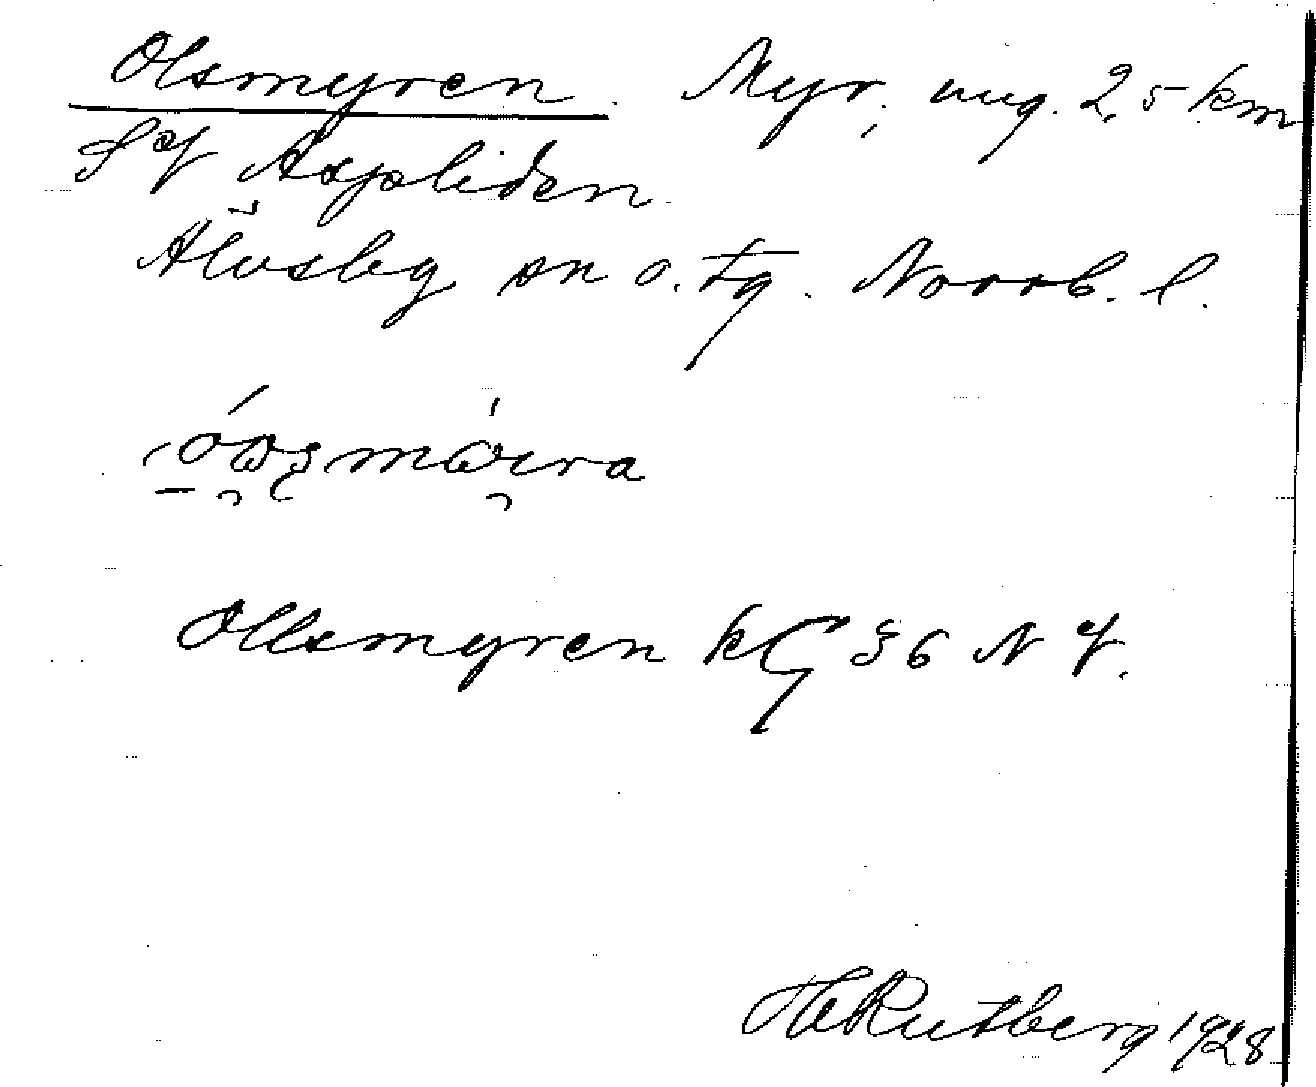 Olsmyren. Myr, ung. 2,5 km
SV Aspliden.
Älvsby sn o. tg. Norrb. l.
Ollsmyren kG 36 NV.
H Rutberg 1928